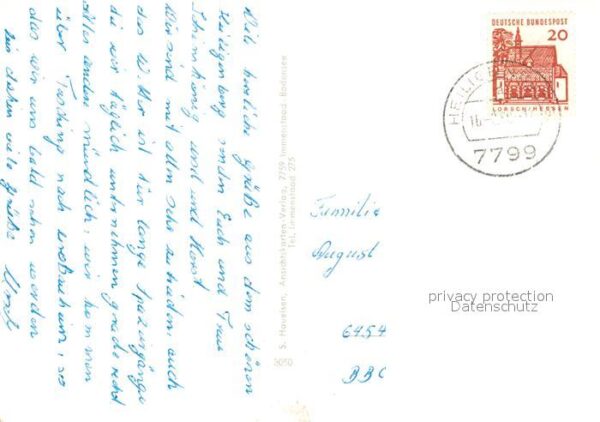 Viele herzliche Grüße aus dem schönen
Heiligenberg senden Euch und Frau
und Horst
Wir sind mit allem sehr zufrieden auch
das Wetter ist für lange Spaziergänge
die wir täglich unternehmen gerade recht
Alles andere mündlich, wir kommen
über nach
das wir uns bald sehen werden
bis dahin viele Grüße
S. Hauelsen, Ansichtskarten-Verlag, 7759 Immenstaad Bodensee
Tel. Immenstaad 275
5050
DEUTSCHE BUNDESPOST
20
LORSCH/HESSEN
7799
Familie
August
6454
BBC
privacy protection
Datenschutz